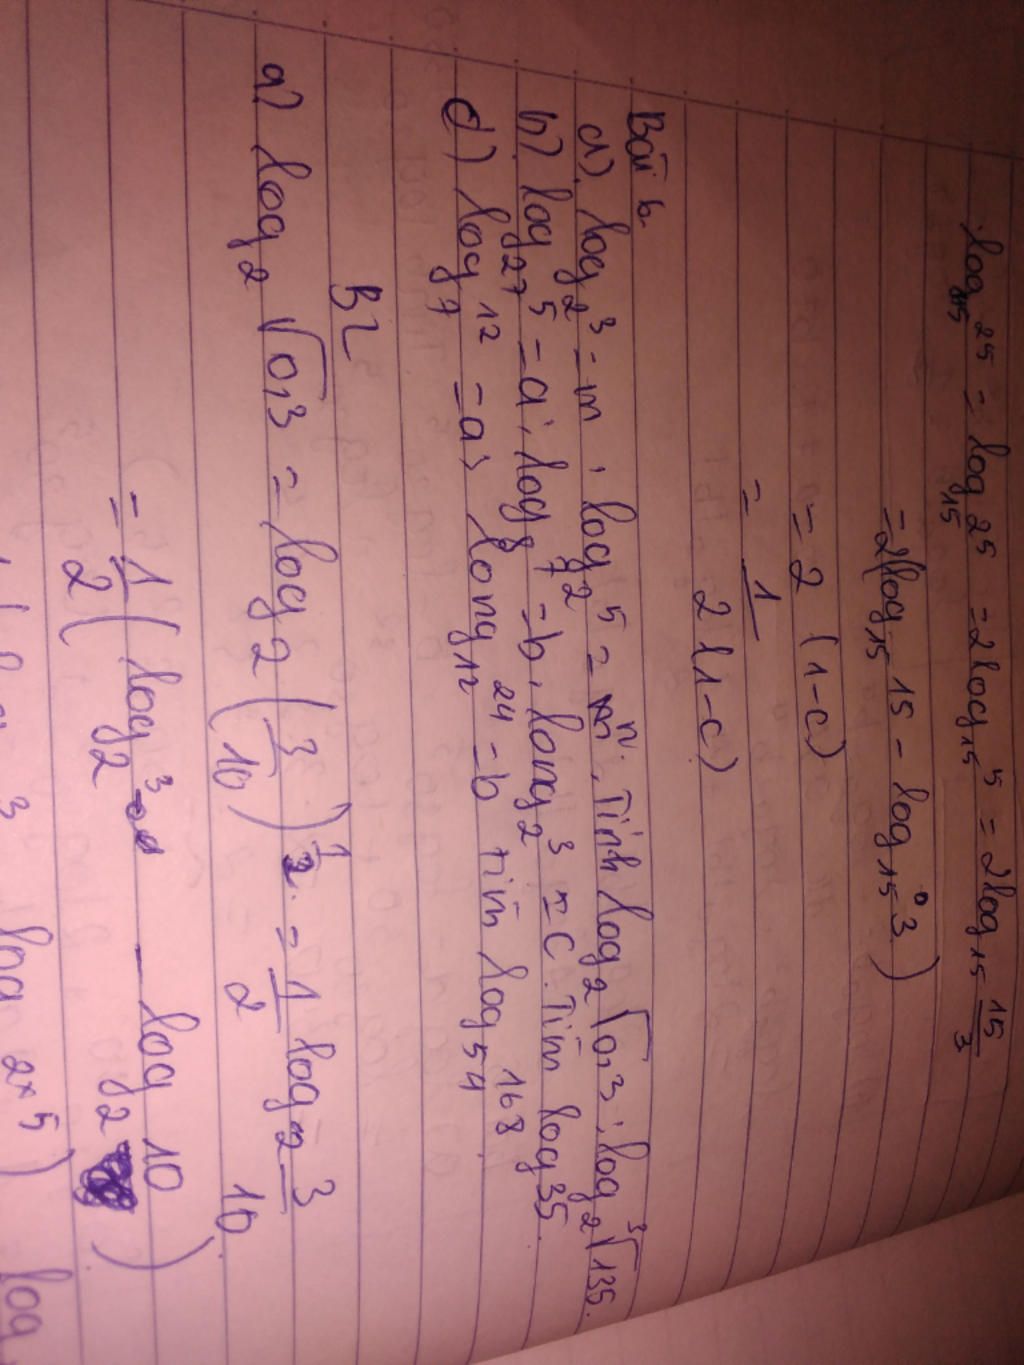 log₁₅ 25 = log₁₅ 25 = 2log₁₅ 5 = 2log₁₅ 15/3
= 2(log₁₅ 15 - log₁₅ 3)
= 2 (1-c)
= 1/2(1-c)
Bài 6
a) log₂ 3 = m, log₂ 5 = n. Tính log₂ √0,3; log₂ ³√135.
b) log₂₇ 5 = a, log₈ 7 = b, long₂ 3 = c. Tìm log 35.
d) log₇ 12 = a, long₁₂ 24 = b tìm log₅₄ 168
BL
a) log₂ √0,3 = log₂ (3/10)^1/2 = 1/2 log₂ 3/10
= 1/2 (log₂ 3 - log₂ 10)